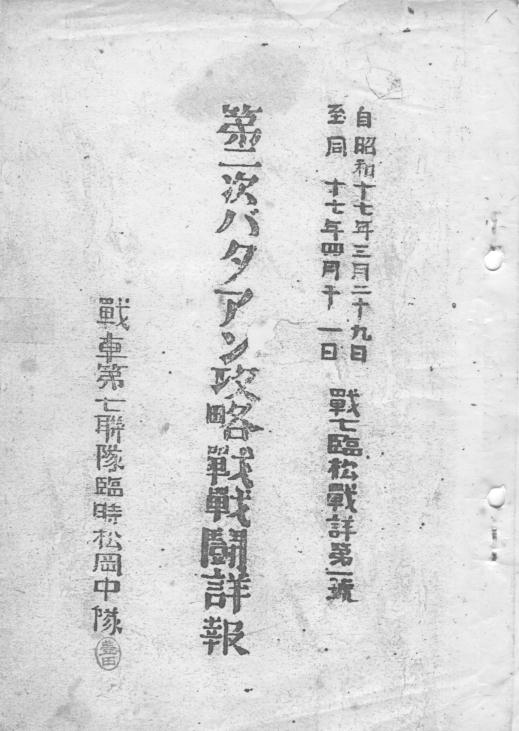 自昭和十七年三月二十九日
至同 十七年四月十一日
戰七臨松戰詳第一號
第二次バタアン攻略戰戰鬪詳報
戰車第七聯隊臨時松岡中隊
豊田